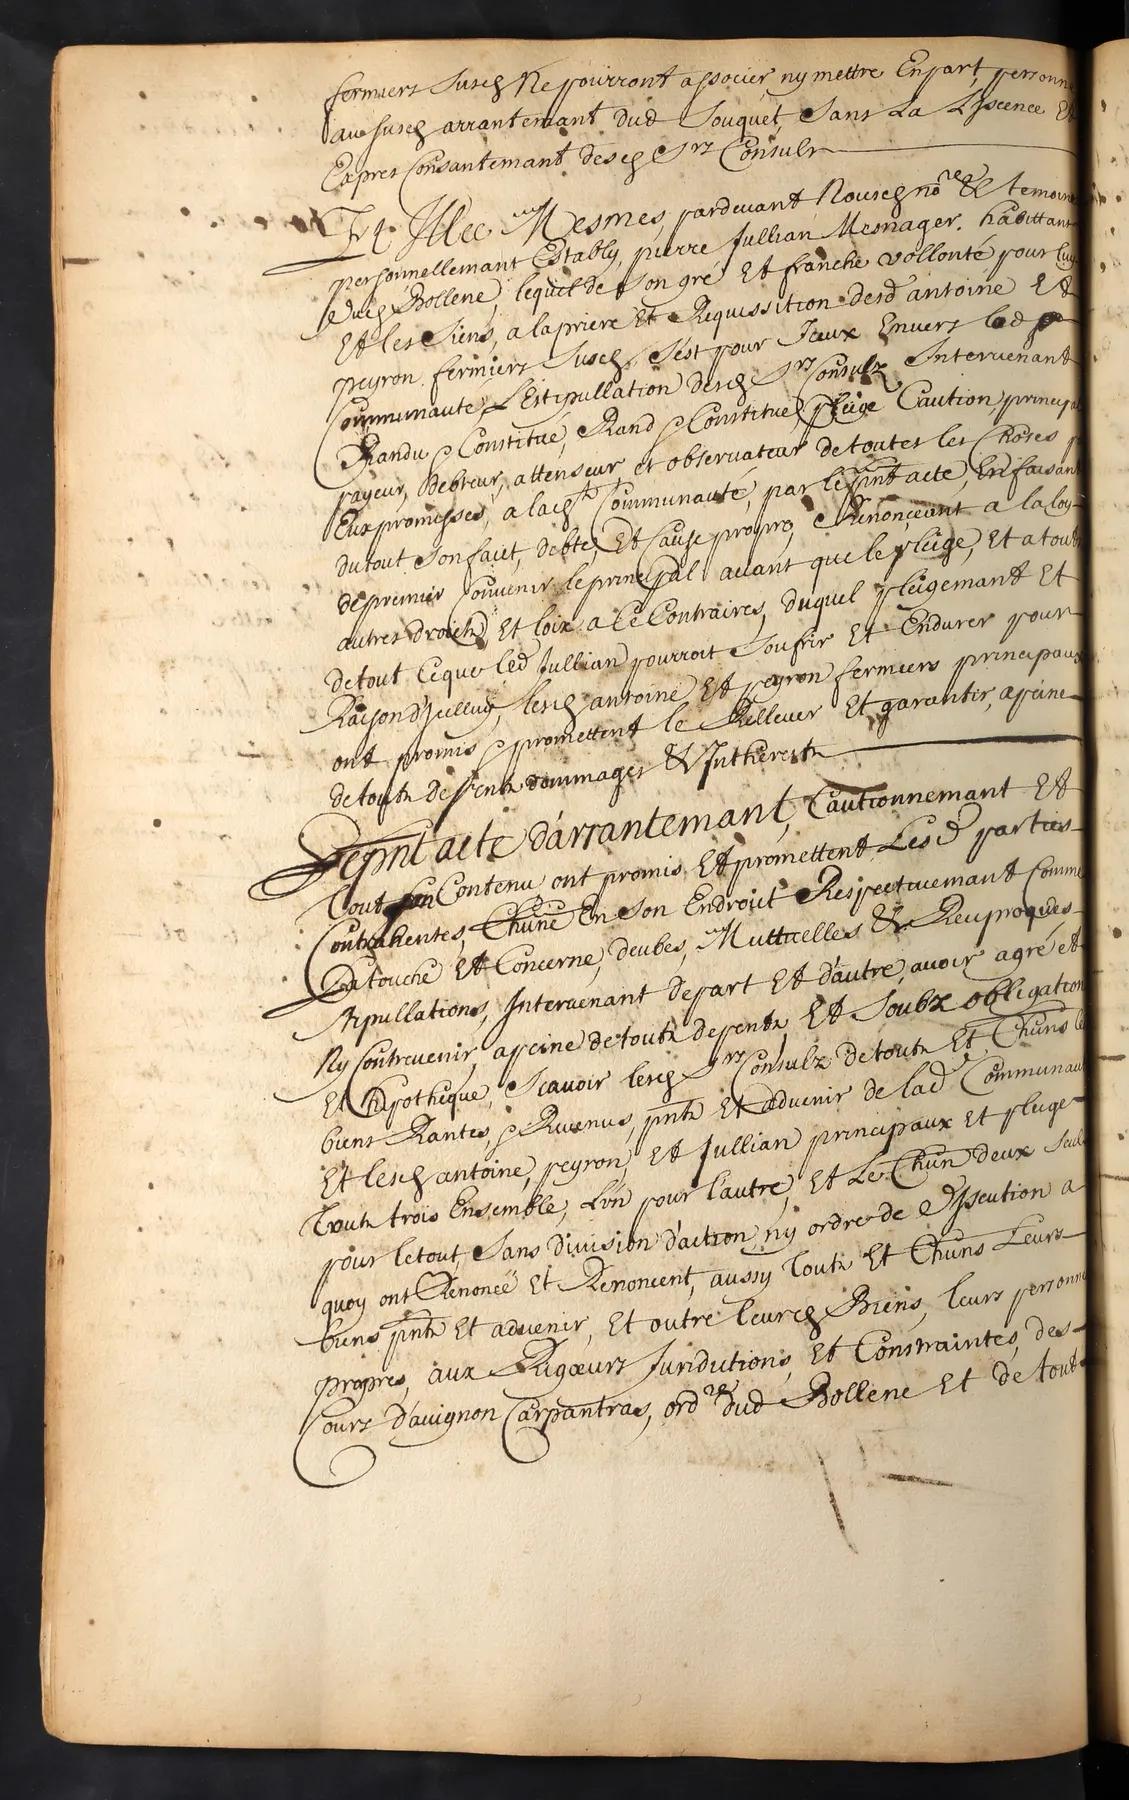 fermiers susd Ne pourront associer, ny mettre En part, personne
au susd arrantemant dud Souquet, Sans La Lissence Et
Expres Consantemant desd Srs Consulz
Et Illec Mesmes, pardevant Nousd nore & temoins
personnellemant Estably, pierre Jullian Mesnager, habittant
dud Bollene, lequel de Son gré Et franche vollonté pour luy
Et les Siens, a la priere Et Requissition desd antoine Et
peyron fermiers Susd, S'est pour Iceux Envers lad
Communauté, L'Estipullation desd Srs Consulz Intervenant
Randu & Constitué, Rand & Constitue, pleige Caution, principal
payeur, debteur, attenseur et observateur de toutes les Choses p
Eux promisses, a lad Communauté, par le pnt acte, En faisant
du tout Son faict, debte, Et Cause propre, Renonçeant a la loy
de premier Convenir le principal avant que le pleige, Et a toutz
autres droictz Et loix a Ce Contraires, duquel pleigemant Et
de tout Ce que led Jullian pourroit Soufrir Et Endurer pour
Raison d'Icelluy, lesd antoine Et peyron fermiers principaux
ont promis & promettent le Rellever Et garantir, a peine
de toutz despentz dommages & Inthéretz
Le pnt acte d'arrantemant, Cautionnemant Et
tout Son Contenu ont promis Et promettent Lesd parties
Contrahentes, Chune En Son Endroict Respectivemant Comme
La touche Et Concerne, deubes, Muttuelles & Reciproques
stipullations, Intervenant de part Et d'autre, avoir agré et
Ny Contrevenir, a peine de toutz depentz, Et Soubz obligation
Et Hipotheque, Scavoir lesd Srs Consulz de toutz Et Chuns les
biens Rantes, & Revenus, pntz Et advenir de lad Communauté
Et lesd antoine, peyron, Et Jullian principaux et pleige
toutz trois Ensemble, L'un pour l'autre, Et Le Chun deux Seul
pour le tout, Sans division d'action, ny ordre de d'Issention a
quoy ont Renoncé Et Renoncent, aussy toutz Et Chuns Leurs
biens pntz Et advenir, Et outre leursd Biens, leurs personnes
propres, aux Rigoeurs Juridictions, Et Constraintes, des
Cours d'avignon Carpantras, ordre dud Bollene Et de tout